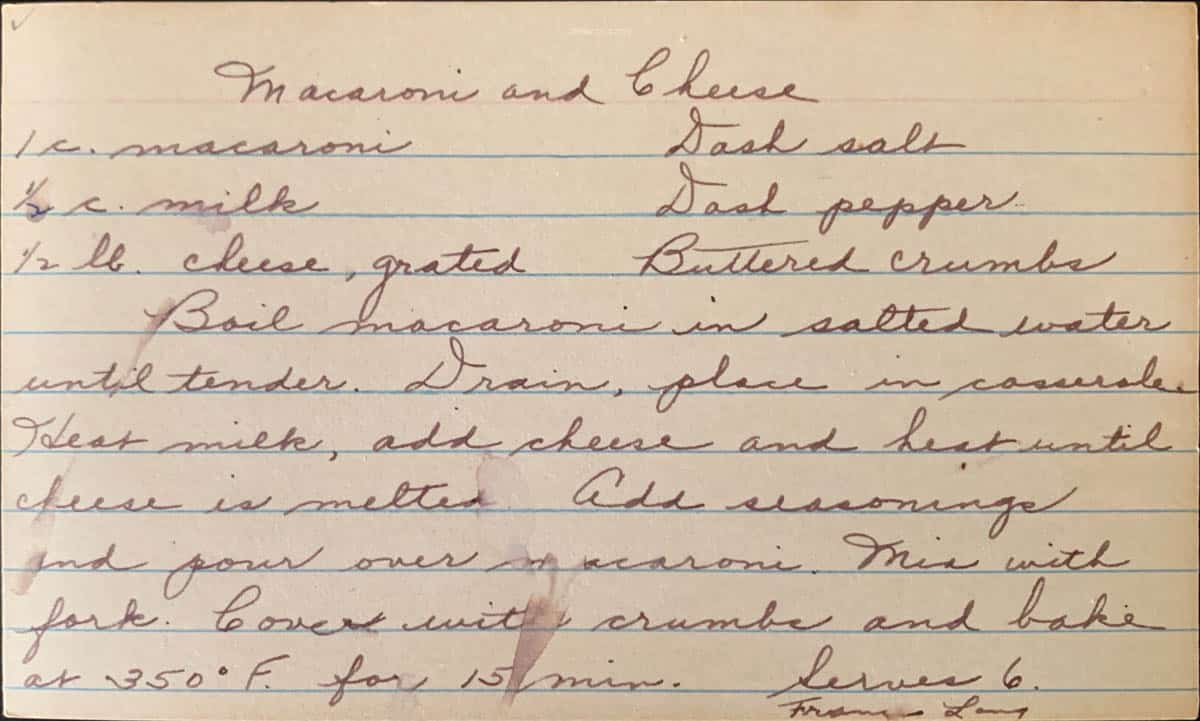 Macaroni and Cheese
1 c. macaroni Dash salt
1/2 c. milk Dash pepper
1/2 lb. cheese, grated Buttered crumbs
Boil macaroni in salted water
until tender. Drain, place in casserole.
Heat milk, add cheese and heat until
cheese is melted. Add seasonings
and pour over macaroni. Mix with
fork. Cover with crumbs and bake
at 350° F. for 15 min. Serves 6.